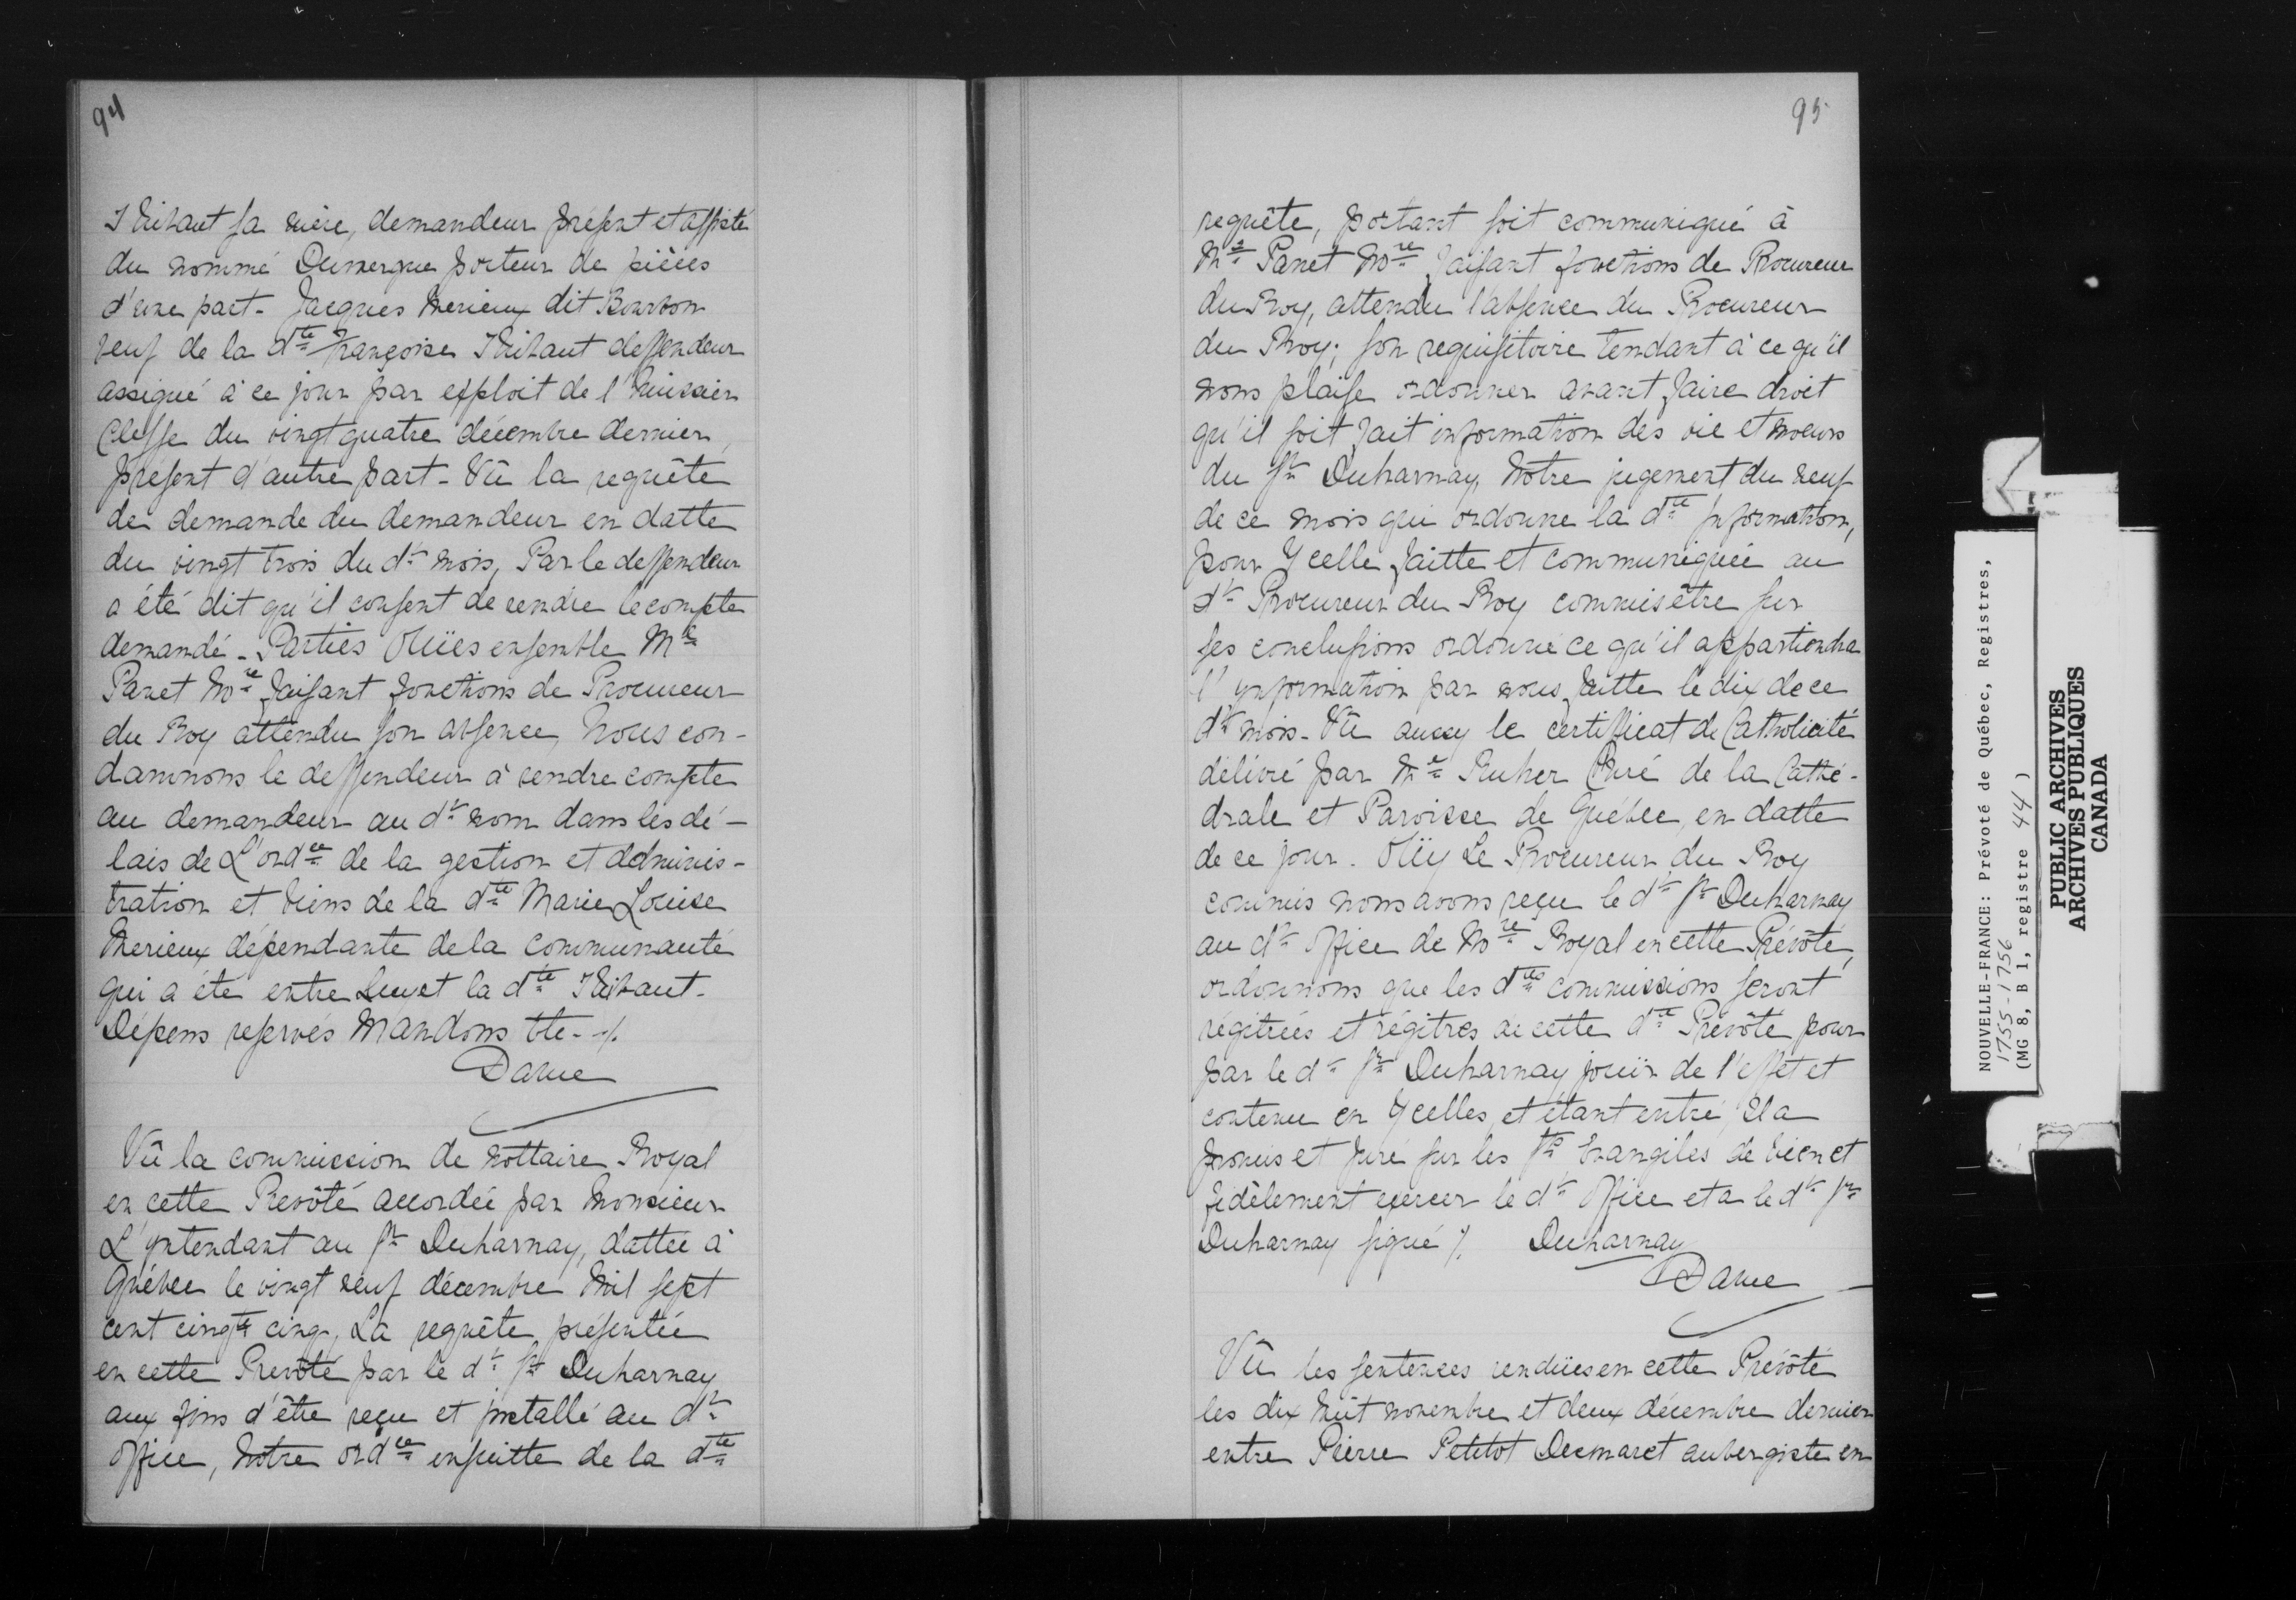 94
Thibaut sa mère, demandeur présent et assisté
du nommé Dumergue porteur de pièces
d'une part - Jacques Merieux dit Bourbon
veuf de la dte Françoise Thibaut deffendeur
assigné à ce jour par exploit de l'huissier
Clesse du vingt quatre décembre dernier,
présent d'autre part - Vû la requête
de demande du demandeur en datte
du vingt trois du dt mois, Par le deffendeur
a été dit qu'il consent de rendre le compte
demandé - Parties Oüies ensemble Me
Panet Nore faisant fonctions de Procureur
du Roy attendu son absence, Nous con-
damnons le deffendeur à rendre compte
au demandeur au dt nom dans les dé-
lais de L'ordce de la gestion et adminis-
tration et biens de la dte Marie Louise
Merieux dépendante de la communauté
qui a été entre Luy et la dte Thibaut -
Dépens reservés Mandons &te - ./.
Daine
Vû la commission de nottaire Royal
en cette Prevôté accordée par Monsieur
L'yntendant au Sr Duharnay, dattée à
Québec le vingt neuf décembre Mil sept
cent cinqte cinq, La requête présentée
en cette Prevôté par le dt Sr Duharnay
aux fins d'être reçu et installé au dt
office, Notre ordce ensuitte de la dte
95
requête, portant soit communiqué à
Me Panet Nore faisant fonctions de Procureur
du Roy, attendu l'absence du Procureur
du Roy; son requisitoire tendant à ce qu'il
nous plaise ordonner avant faire droit
qu'il soit fait information des vie et moeurs
du Sr Duharnay, Notre jugement du neuf
de ce mois qui ordonne la dte Information,
pour Ycelle faitte et communiquée au
dt Procureur du Roy commis être sur
ses conclusions ordonné ce qu'il appartiendra
l'ynformation par nous faitte le dix de ce
dt mois - Vû aussy le certifficat de Catholicité
délivré par Me Récher Curé de la Cathé-
drale et Paroisse de Québec, en datte
de ce jour. Oüy Le Procureur du Roy
commis nous avons reçu le dt Sr Duharnay
au dt office de Nore Royal en cette Prévôté,
ordonnons que les dtes commissions seront
régitrées et régitres de cette dte Prévôté pour
par le dt Sr Duharnay jouir de l'effet et
contenu en Ycelles, et étant entré, Il a
promis et Juré sur les Sts Evangiles de bien et
fidèlement exercer le dt office et a le dt Sr
Duharnay signé ./. Duharnay
Daine
Vû les sentences rendües en cette Prévôté
les dix huit novembre et deux décembre dernier
entre Pierre Petitot Desmaret aubergiste en
NOUVELLE-FRANCE: Prévoté de Québec, Registres,
1755-1756
(MG 8, B 1, registre 44)
PUBLIC ARCHIVES
ARCHIVES PUBLIQUES
CANADA